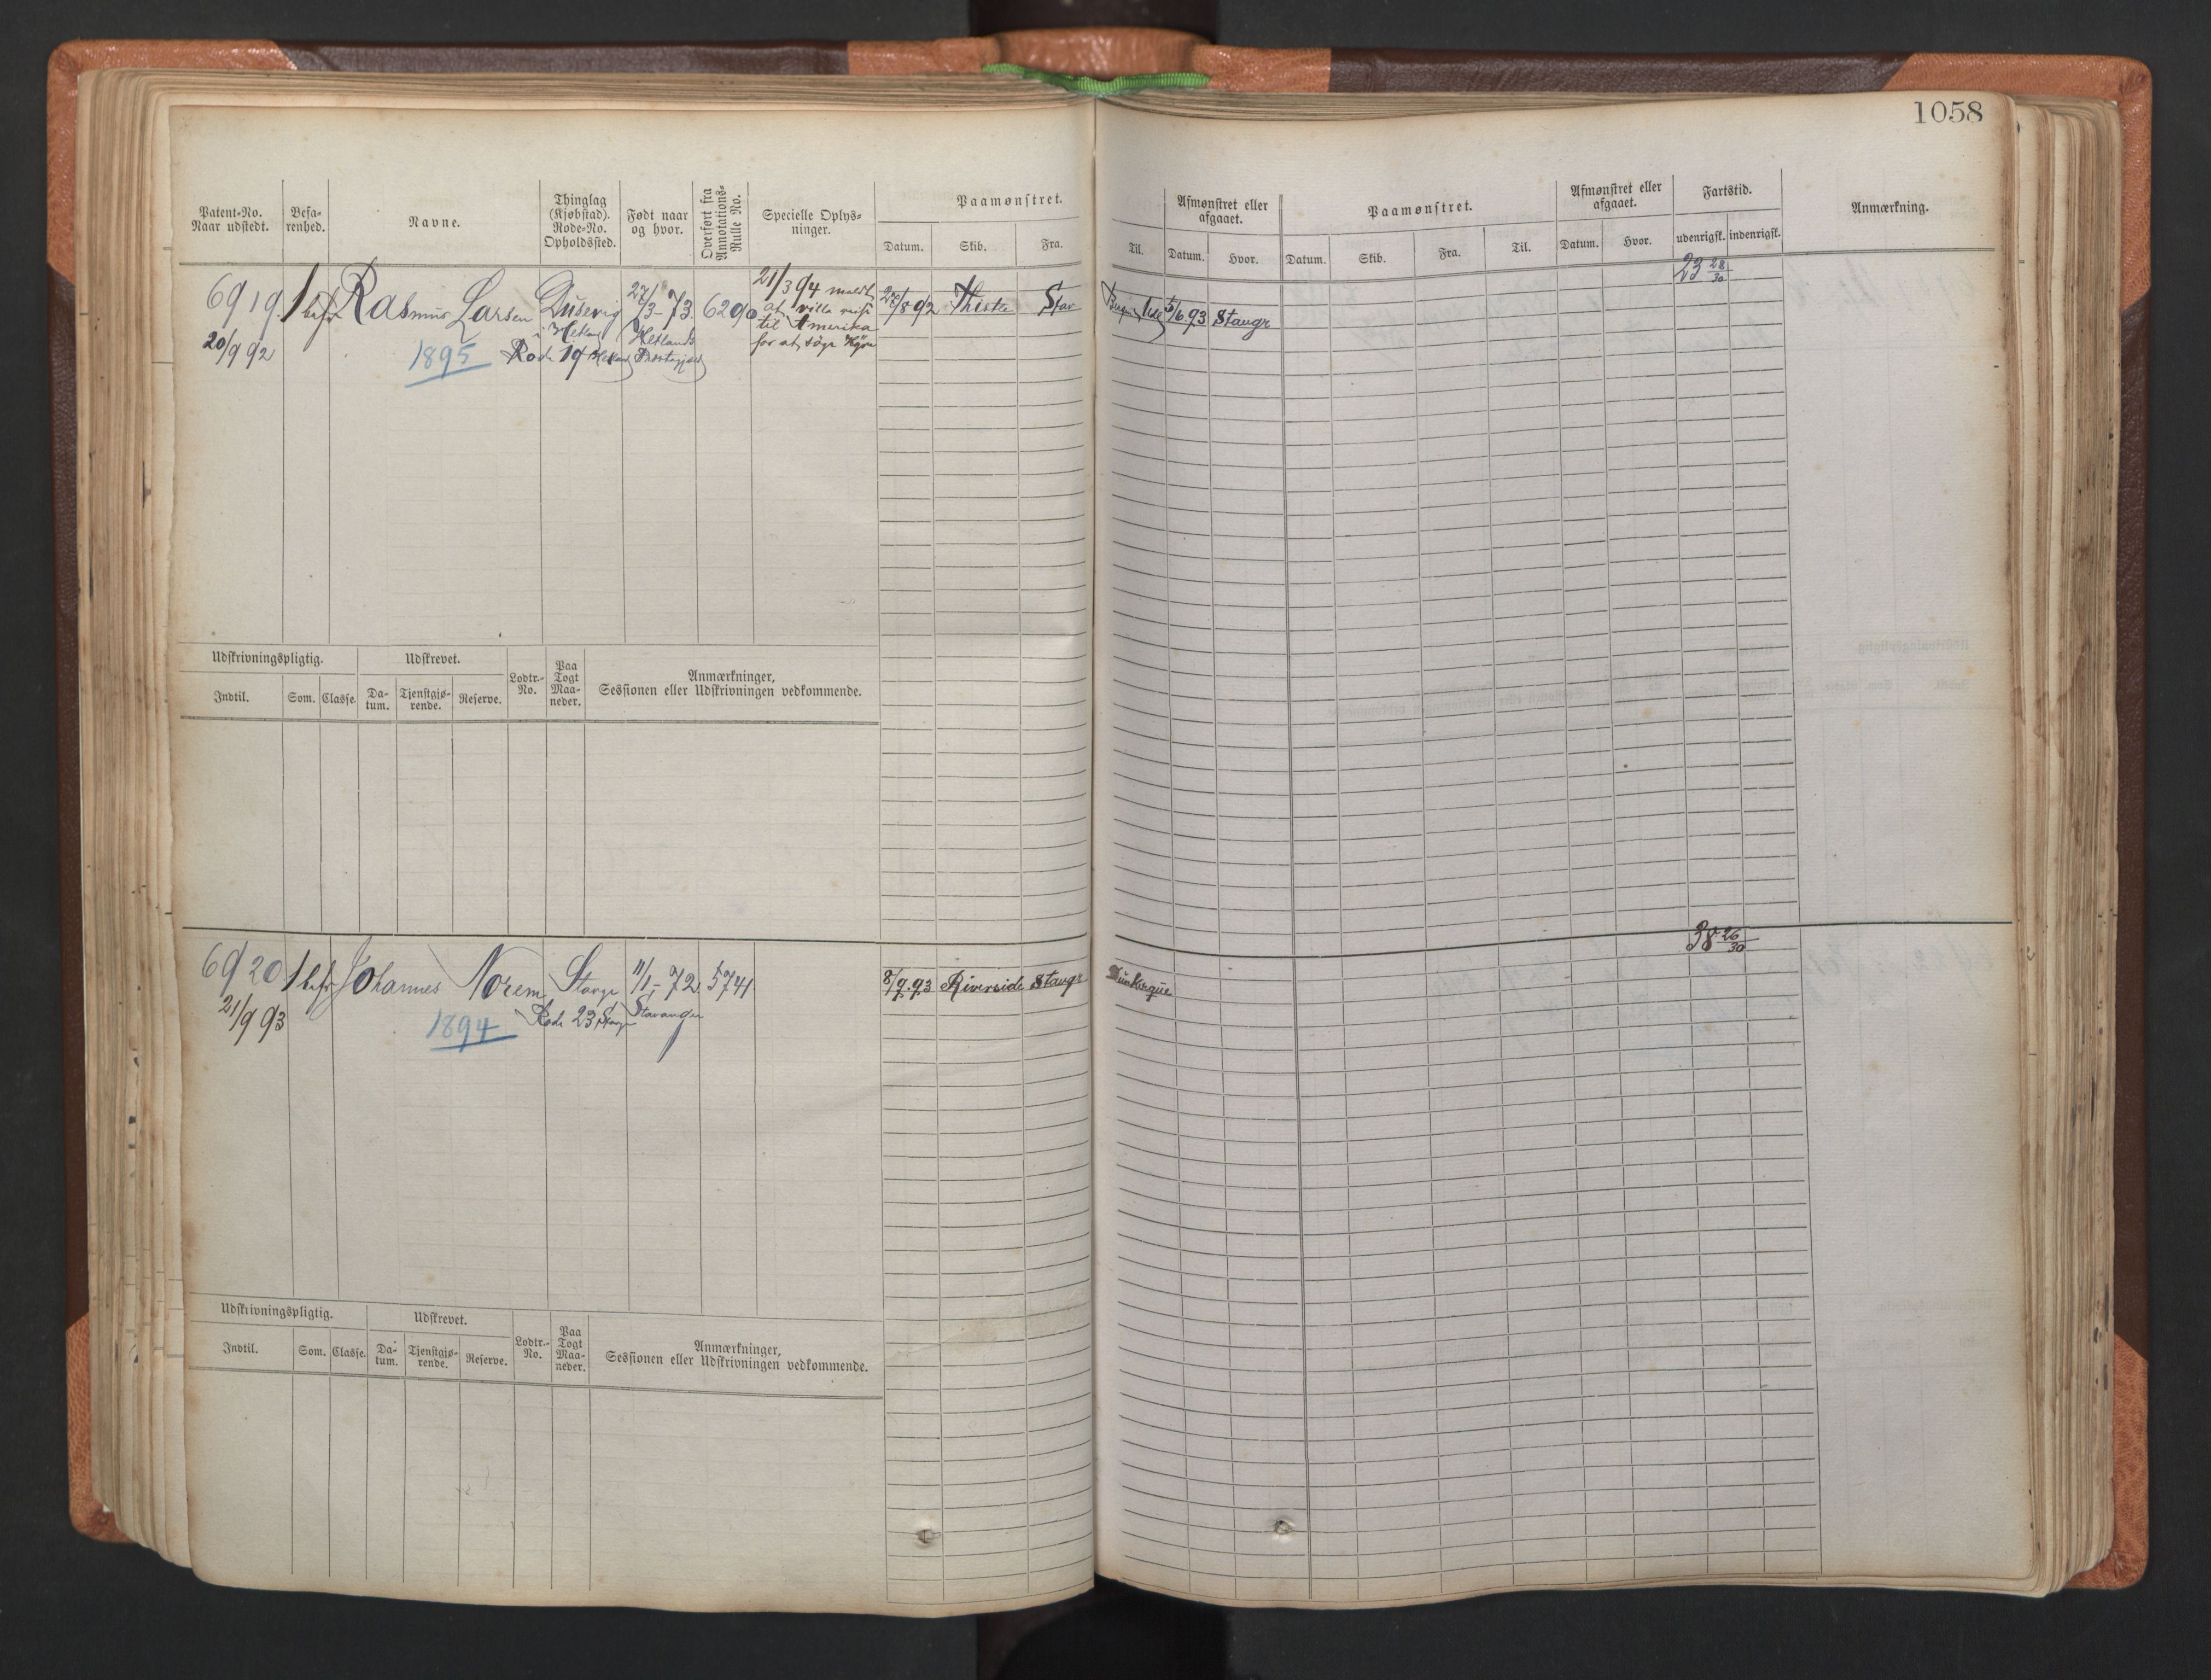 1058
Patent-No.
Naar udstedt.
Befa-
renhed.
Navne.
Thinglag
(Kjøbstad).
Rode-No.
Opholdssted.
Født naar
og hvor.
Overført fra
Annotations-
Rulle No.
Specielle Oplys-
ninger.
Paamønstret.
Datum.
Skib.
Fra.
Til.
Afmønstret eller
afgaaet.
Datum.
Hvor.
Paamønstret.
Datum.
Skib.
Fra.
Til.
Afmønstret eller
afgaaet.
Datum.
Hvor.
Fartstid.
udenrigsk.
indenrigsk.
Anmærkning.
6919.
20/9 92
1 bef
Rasmus Larsen
1895
Dusevig
i Hetland
Rode 19 Hetland
27/3-73.
Hetlands
Præstegjæld
6290
21/3 94 meldt
at ville reise
til Amerika
for at søge Hyre
27/8 92
Thistle
Stav
5/6.93
Stavgr
23 28/30
Udskrivningspligtig.
Indtil.
Som.
Classe.
Udskrevet.
Da-
tum.
Tjenstgjø-
rende.
Reserve.
Lodtr.-
No.
Paa
Togt
Maa-
neder.
Anmærkninger,
Sessionen eller Udskrivningen vedkommende.
6920
21/9 93
1 bef
Johannes Norem
1894
Stavgr
Rode 23 Stavgr
11/1-72.
Stavanger
5741
8/9.93
Riverside
Stavgr
Dunkerque
38 26/30
Udskrivningspligtig.
Indtil.
Som.
Classe.
Udskrevet.
Da-
tum.
Tjenstgjø-
rende.
Reserve.
Lodtr.-
No.
Paa
Togt
Maa-
neder.
Anmærkninger,
Sessionen eller Udskrivningen vedkommende.